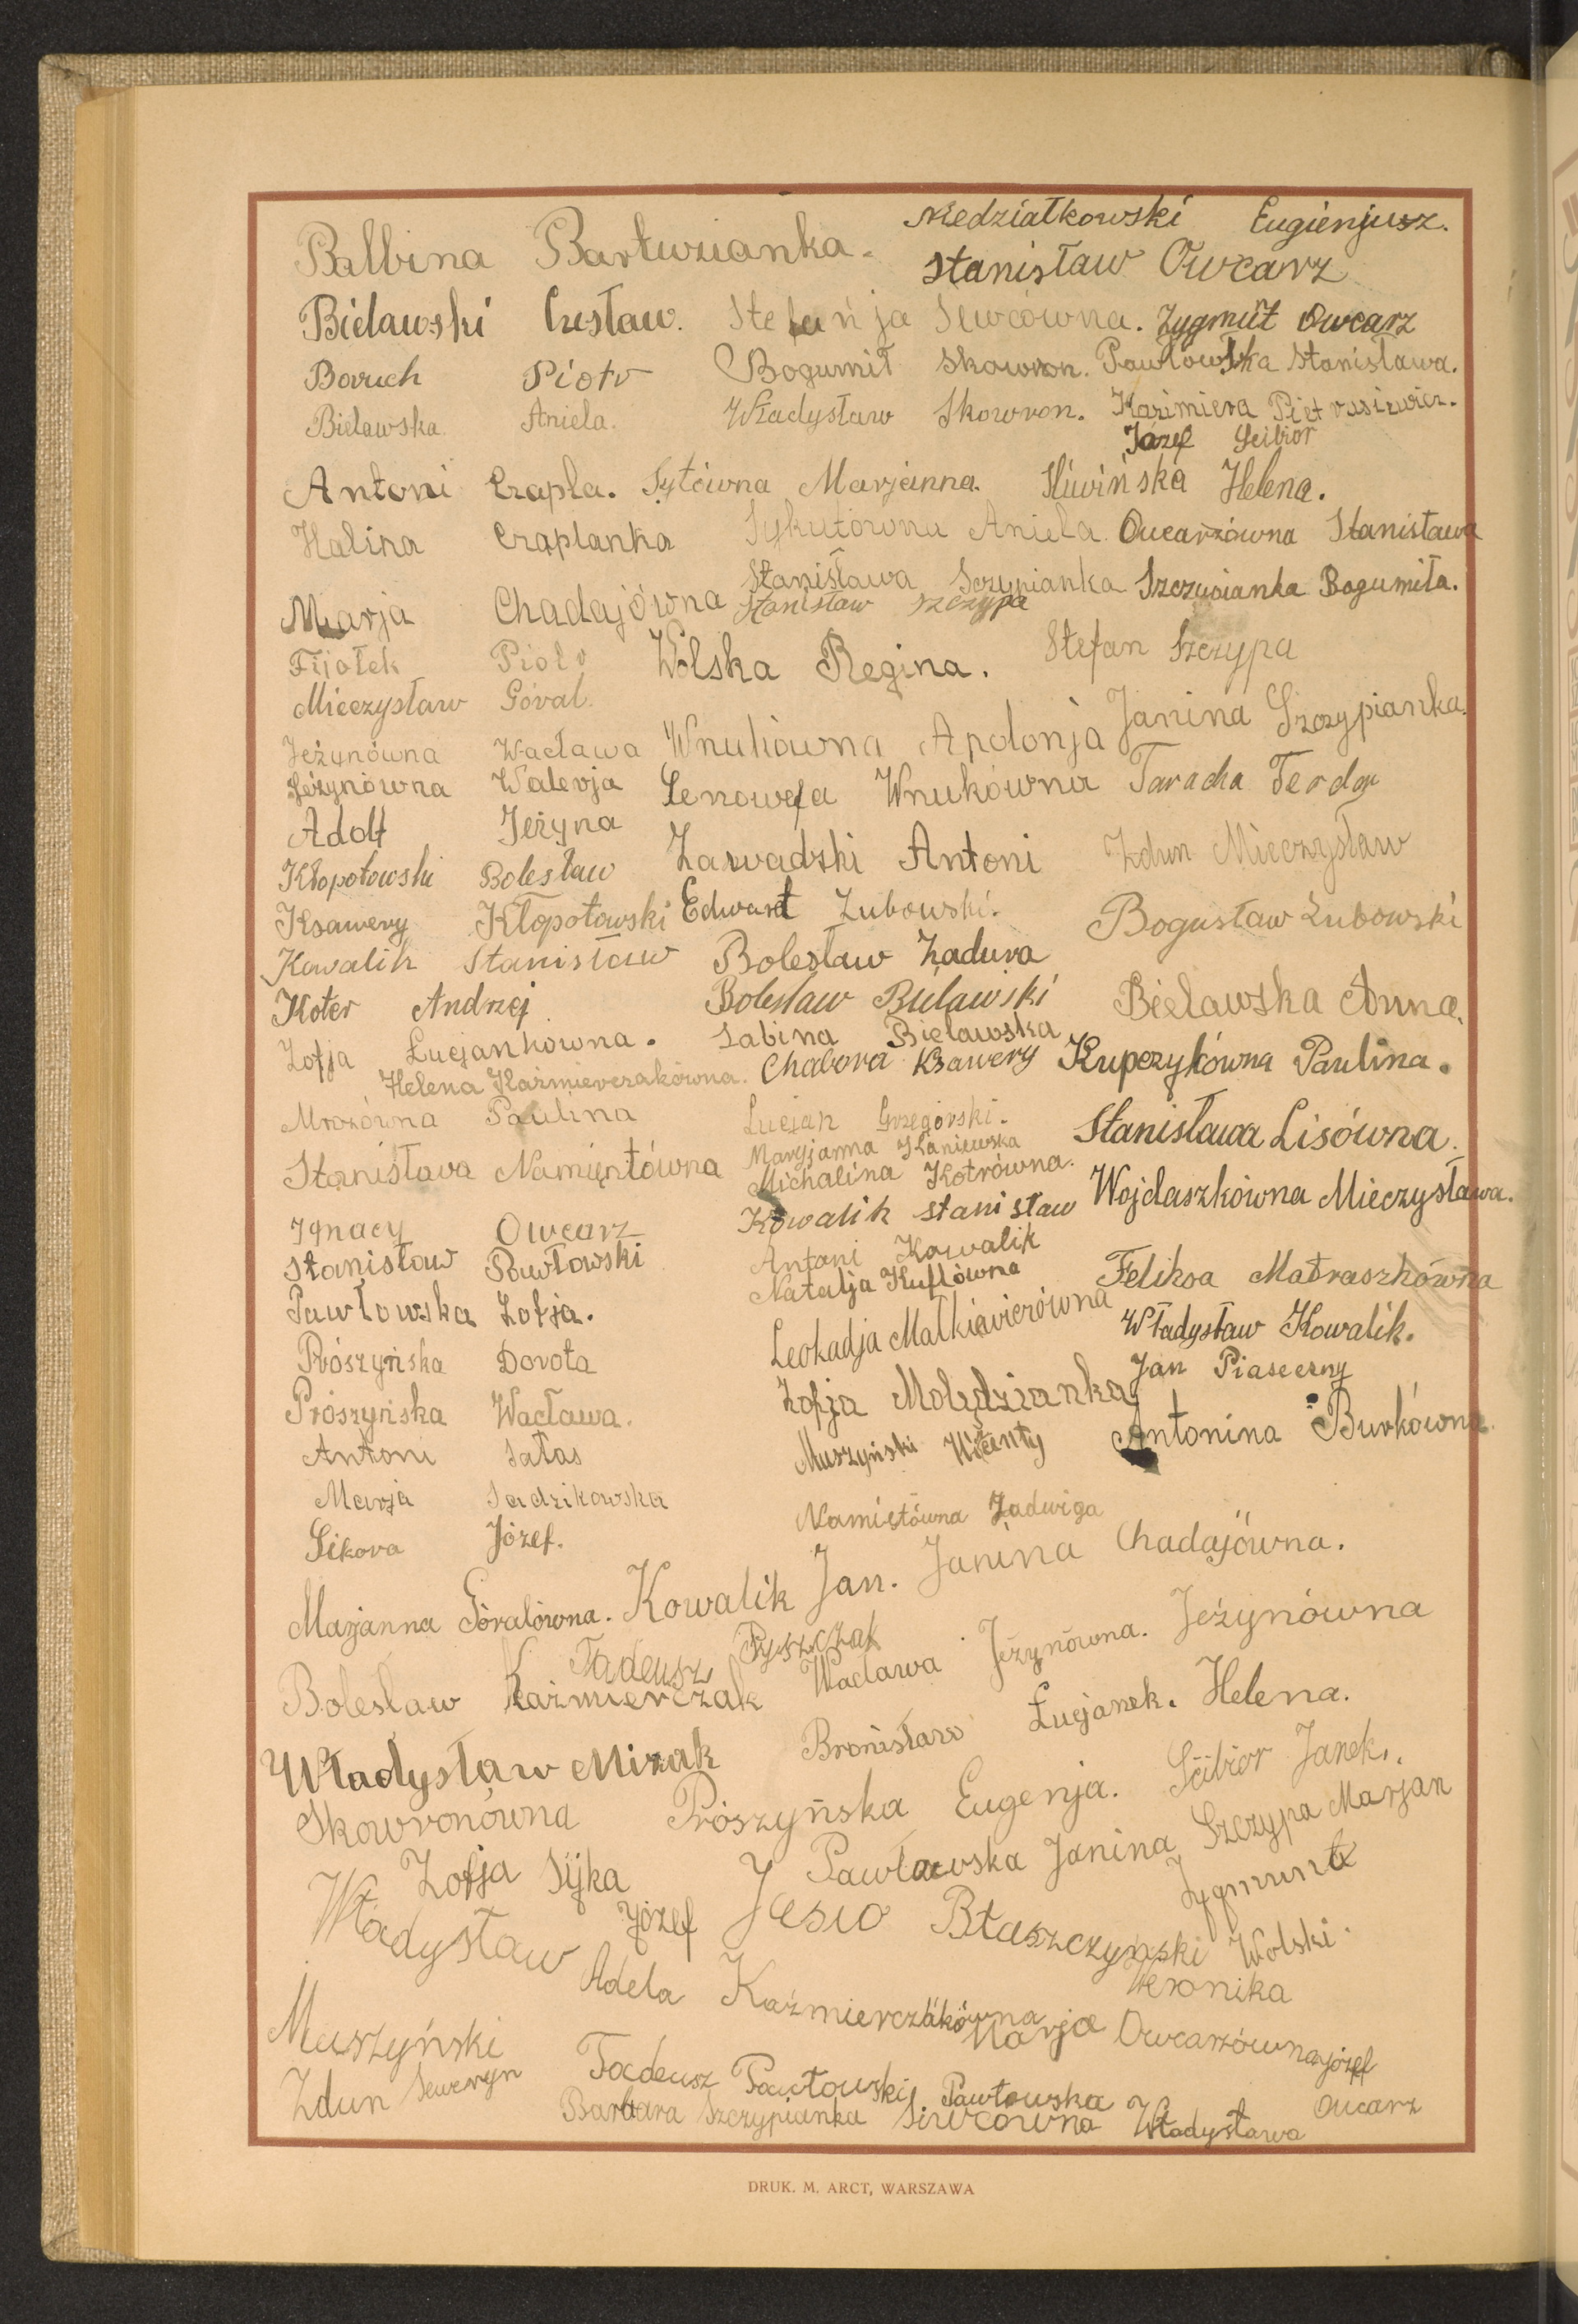 Balbina Bartuzianka.
Niedziałkowski Eugienjusz.
Stanisław Owcarz
Bielawski Czesław. Stefanja Siwcówna. Zygmut Owcarz
Boruch Piotr Bogumił Skowron. Pawłowska Stanisława.
Bielawska Aniela. Władysław Skowron. Kazimiera
Józef Scibior
Antoni Czapla. Sytówna Marjanna. Śliwińska Helena.
Halina Czaplanka Sykutówna Aniela. Owcarzówna Stanisława
Marja Chadajówna Stanisława Sczypianka Szczypianka Bogumiła.
Stanisław Szczypa
Fijołek Piotr Wolska Regina. Stefan Szczypa
Mieczysław Góral.
Jeżynówna Wacława Wnukówna Apolonja Janina Szczypianka.
Jeżynówna Walerja Genowefa Wnukówna Taracha Ferdy
Adolf Jeżyna
Kłopotowski Bolesław Zawadzki Antoni Zdun Mieczysław
Ksawery Kłopotowski Edward Zubowski. Bogusław Zubowski
Kowalik Stanisław Bolesław Zadura
Koter Andrzej Bolesław Bielawski Bielawska Anna.
Zofja Łucjankówna. Sabina Bielawska
Helena Kaźmierczakówna. Chabora Ksawery Kupczykówna Paulina.
Mrozówna Paulina Lucjan Grzegorski. Stanisława Lisówna.
Stanisława Namiętówna Maryjanna Kaniewska
Michalina Kotrówna. Wojdaszkówna Mieczysława.
Ignacy Owcarz Kowalik Stanisław
Stanisław Pawłowski Antoni Kowalik
Pawłowska Zofja. Natalja Kuflówna Feliksa Matraszkówna
Prószyńska Dorota Leokadja Małkiewiczówna Władysław Kowalik.
Prószyńska Wacława. Zofja Molędzianka Jan Piaseczny
Antoni Sałas Muszyński Wicenty Antonina Burkówna.
Marja Sadzikowska Namiętówna Jadwiga
Sikora Józef.
Marjanna Góralówna. Kowalik Jan. Janina Chadajówna.
Tadeusz Pyszczak
Bolesław Kaźmierczak Wacława Jeżynówna. Jeżynówna
Władysław Mizak Bronisław Łucjanek. Helena.
Skowronówna Prószyńska Eugenja. Scibior Janek.
Zofja Sijka Pawłowska Janina Szczypa Marjan
Władysław Józef Jesio Błaszczyński Zygmunt
Wolski.
Adela Kaźmierczakówna Weronika
Muszyński Marja Owcarzówna Józef
Zdun Seweryn Tadeusz Pawłowski Pawłowska Owcarz
Barbara Szczypianka Siwcówna Władysława
DRUK. M. ARCT, WARSZAWA